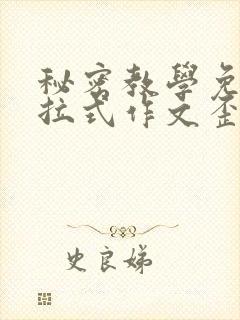 秘密教學免
拉式作文歪
史良娣